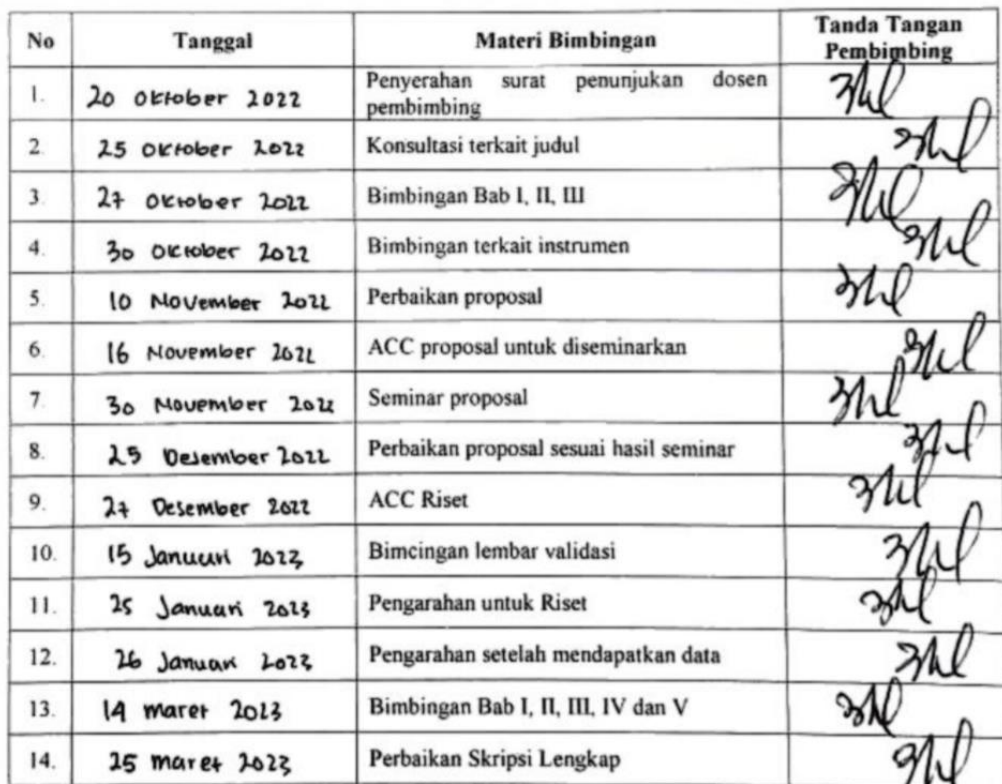 No Tanggal Materi Bimbingan Tanda Tangan
Pembimbing
1. 20 Oktober 2022 Penyerahan surat penunjukan dosen
pembimbing
2. 25 Oktober 2022 Konsultasi terkait judul
3. 27 Oktober 2022 Bimbingan Bab I, II, III
4. 30 Oktober 2022 Bimbingan terkait instrumen
5. 10 November 2022 Perbaikan proposal
6. 16 November 2022 ACC proposal untuk diseminarkan
7. 30 November 2022 Seminar proposal
8. 25 Desember 2022 Perbaikan proposal sesuai hasil seminar
9. 27 Desember 2022 ACC Riset
10. 15 Januari 2023 Bimcingan lembar validasi
11. 25 Januari 2023 Pengarahan untuk Riset
12. 26 Januari 2023 Pengarahan setelah mendapatkan data
13. 14 maret 2023 Bimbingan Bab I, II, III, IV dan V
14. 25 maret 2023 Perbaikan Skripsi Lengkap